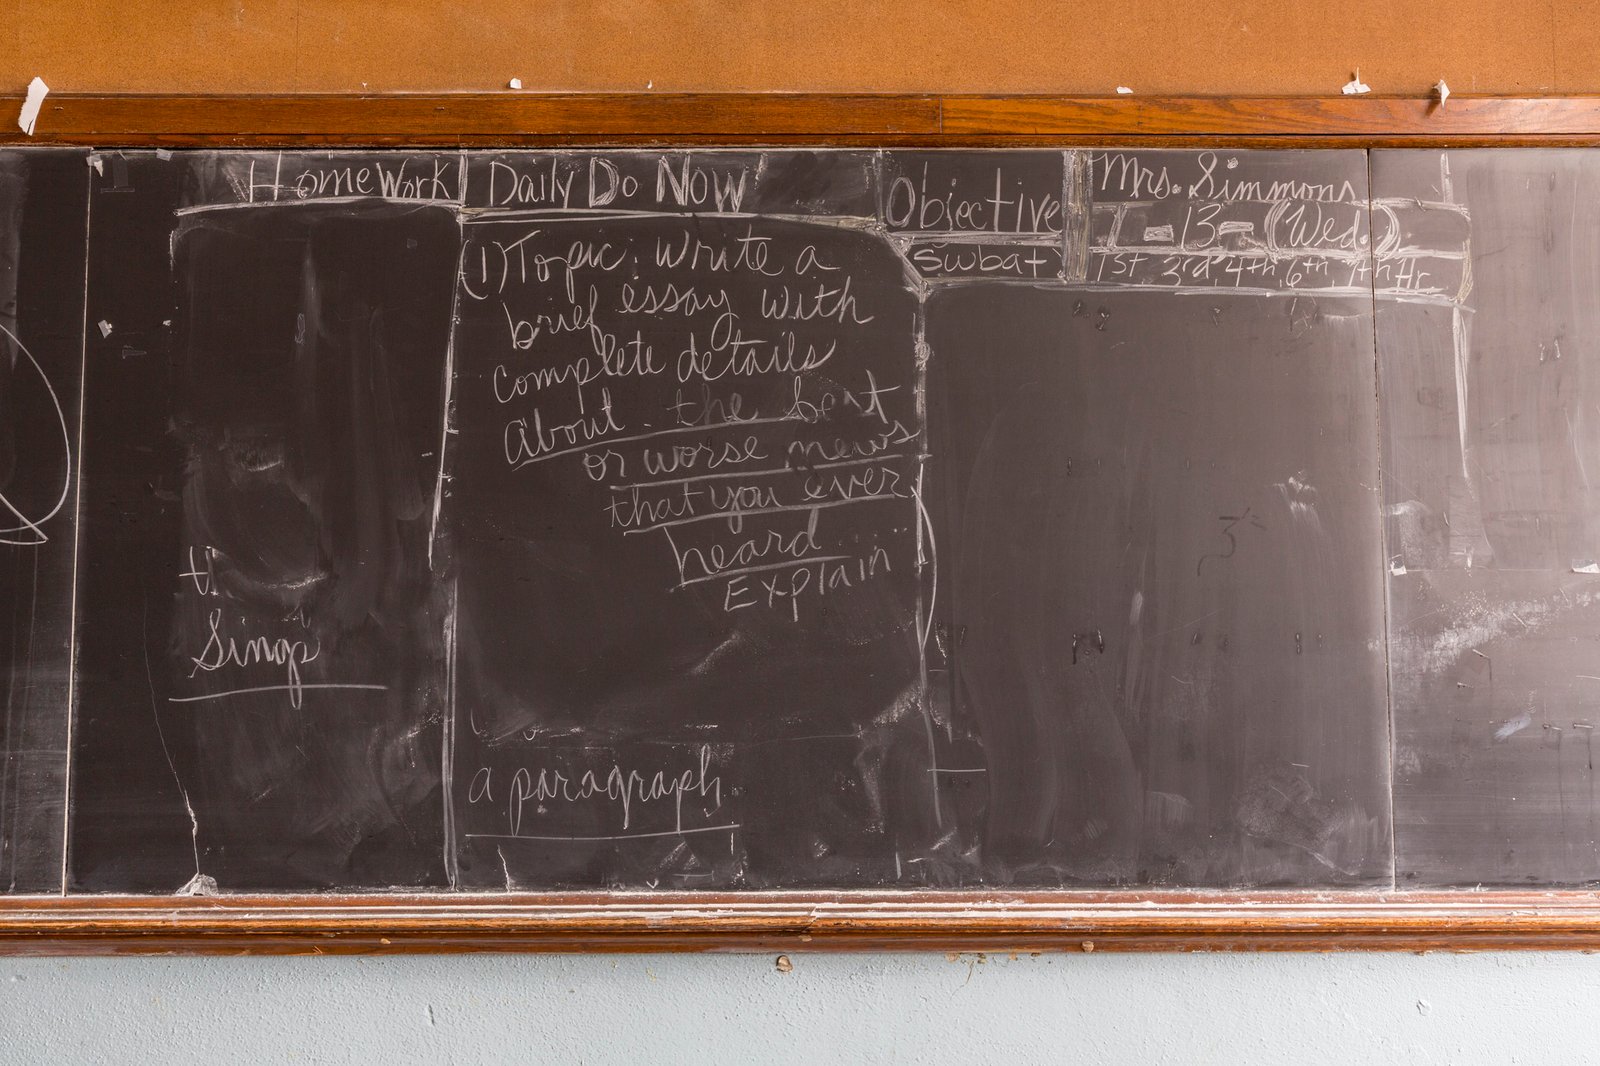 HomeWork
Daily Do Now
Objective
Swbat
Mrs. Simmons
13-(Wed.)
1st, 3rd, 4th, 6th, 7th Hr.
(1) Topic: Write a
brief essay with
complete details
about the best
or worse news
that you ever
heard...
Explain
a paragraph.